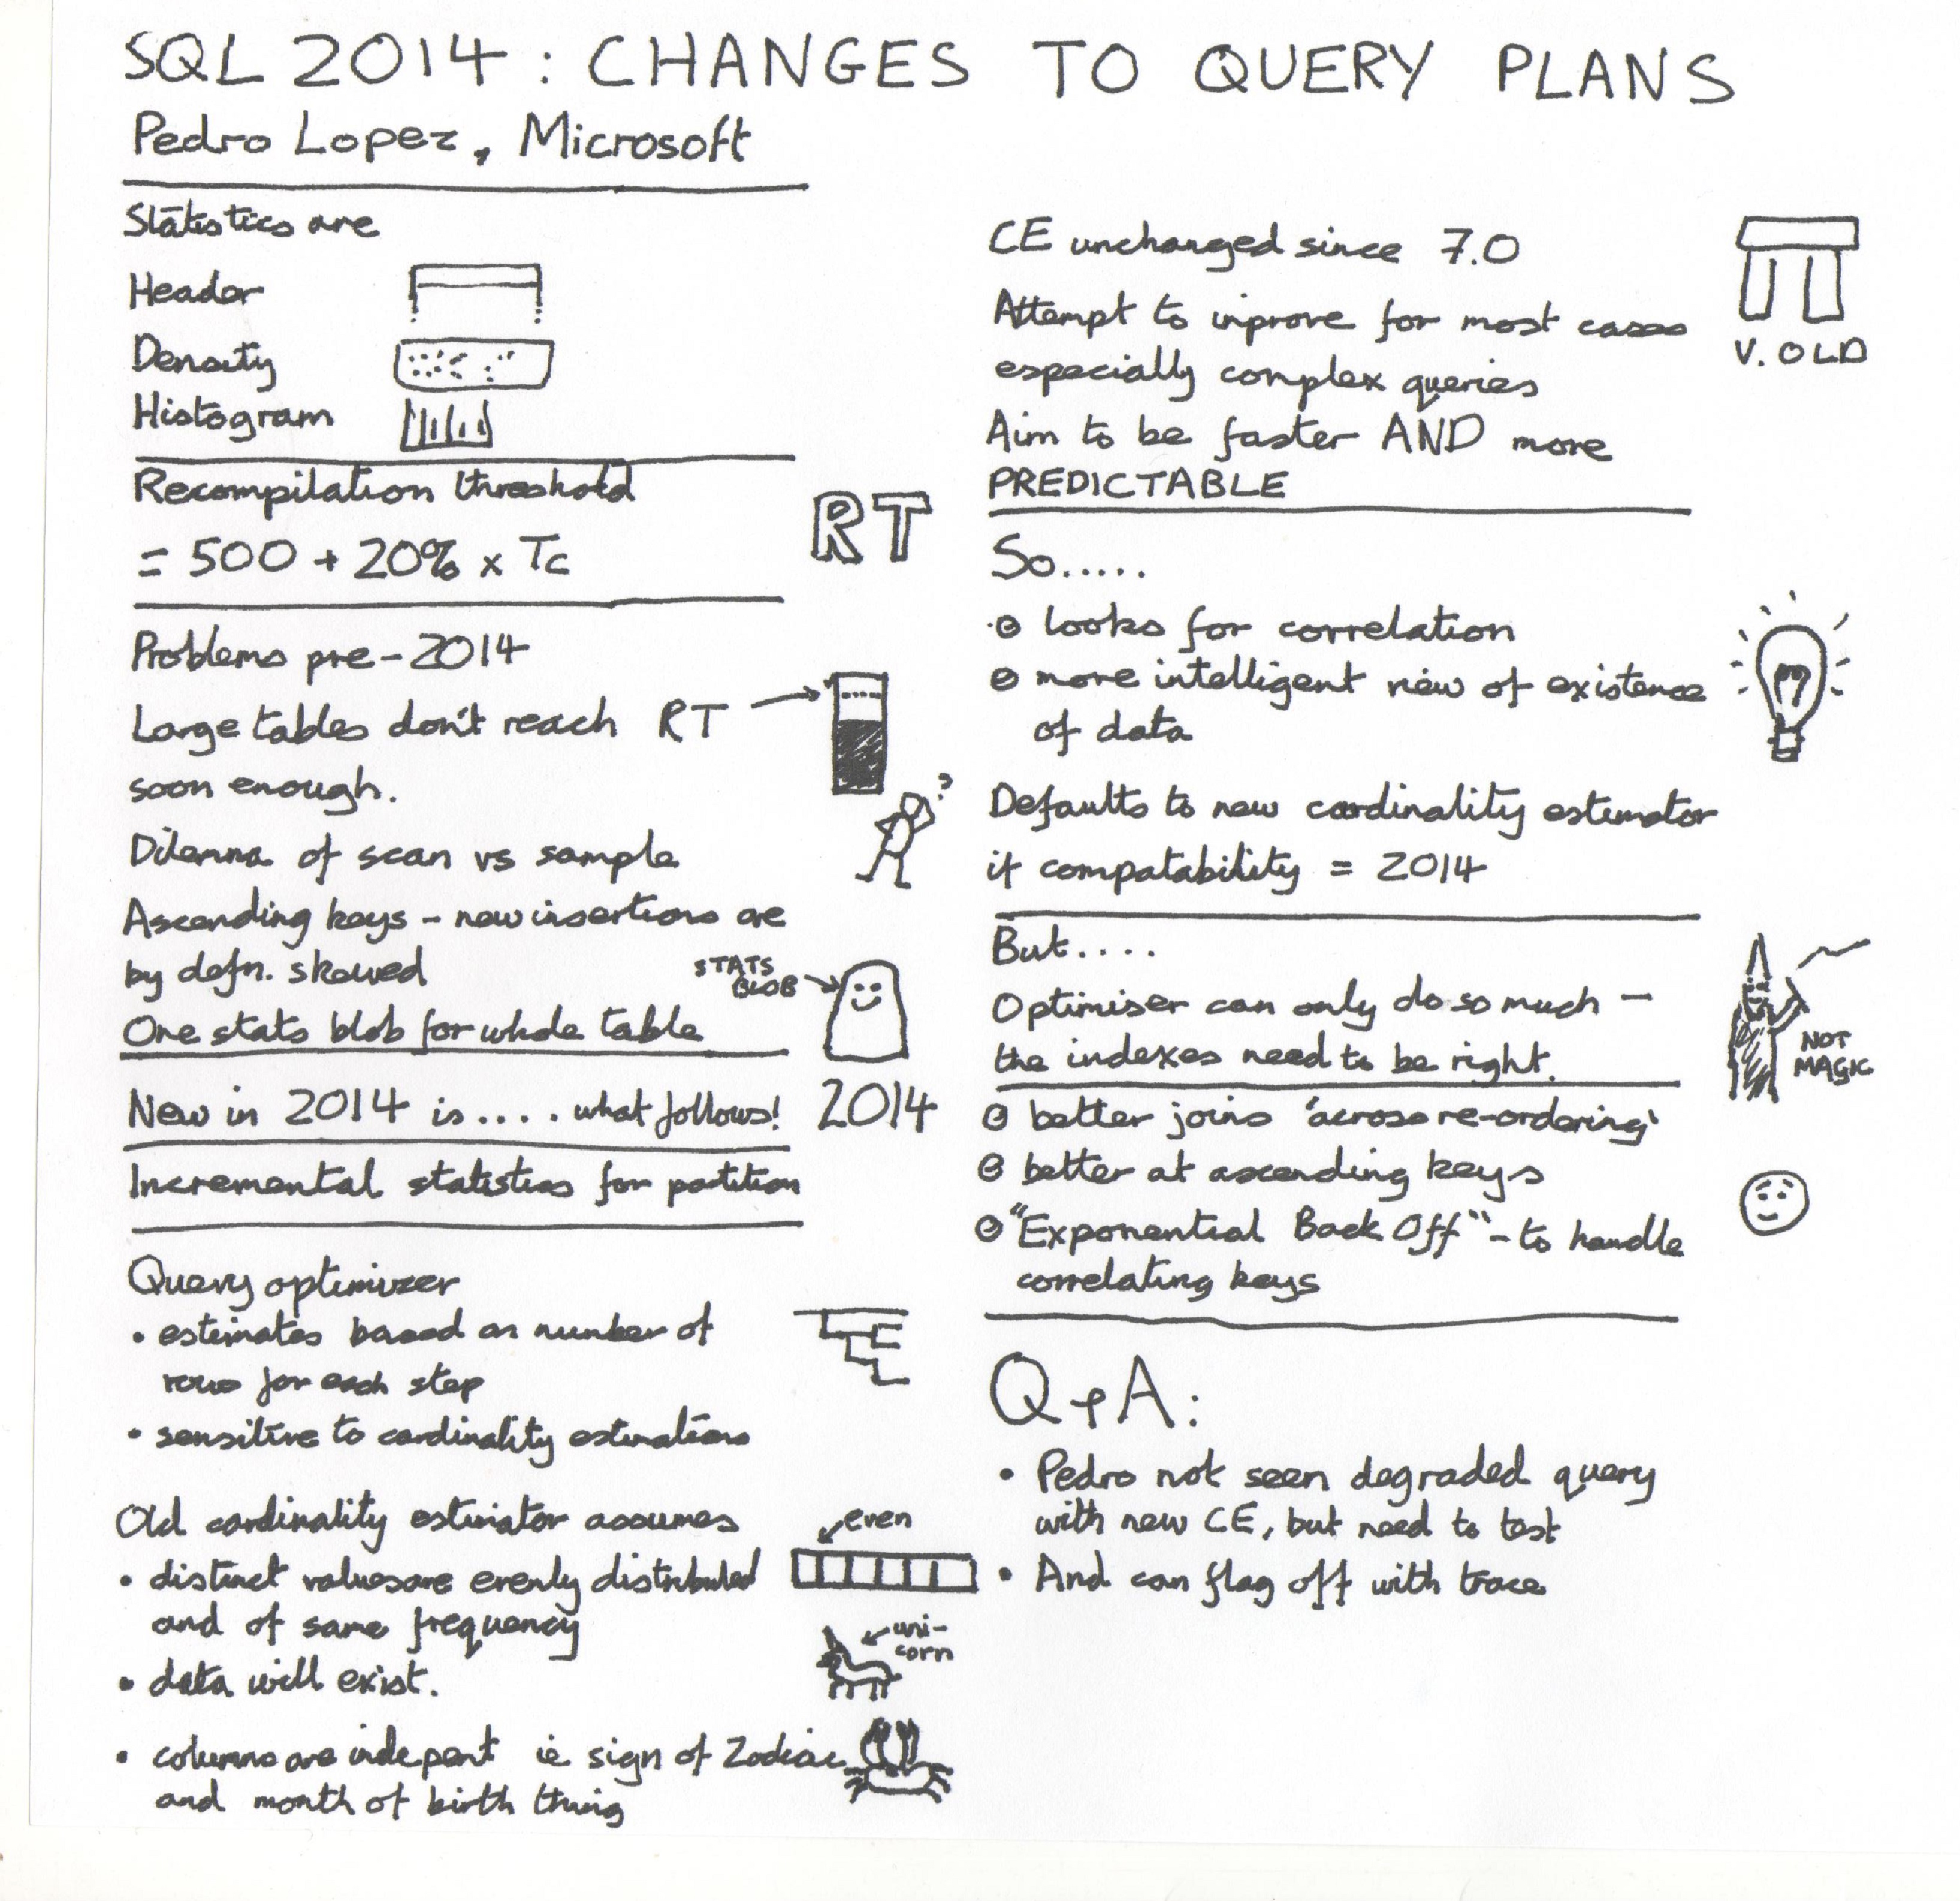 SQL 2014 : CHANGES TO QUERY PLANS
Pedro Lopez, Microsoft
Statistics are
Header
Density
Histogram
Recompilation threshold
= 500 + 20% x Tc
RT
Problems pre-2014
Large tables don't reach RT
soon enough.
?
Dilemma of scan vs sample
Ascending keys - new insertions are
by defn. skewed
STATS
BLOB
One stats blob for whole table
New in 2014 is.... what follows!
2014
Incremental statistics for partition
Query optimizer
• estimates based on number of
rows for each step
• sensitive to cardinality estimations
Old cardinality estimator assumes
• distinct values are evenly distributed
and of same frequency
even
• data will exist.
uni-
corn
• columns are indepent ie sign of Zodiac
and month of birth thing
CE unchanged since 7.0
Attempt to inprove for most cases
especially complex queries
Aim to be faster AND more
PREDICTABLE
V. OLD
So.....
looks for correlation
more intelligent view of existence
of data
Defaults to new cardinality estimator
if compatability = 2014
But....
Optimiser can only do so much -
the indexes need to be right.
NOT
MAGIC
better joins 'across re-ordering'
better at ascending keys
"Exponential Back Off" - to handle
correlating keys
Q+A:
• Pedro not seen degraded query
with new CE, but need to test
• And can flag off with trace